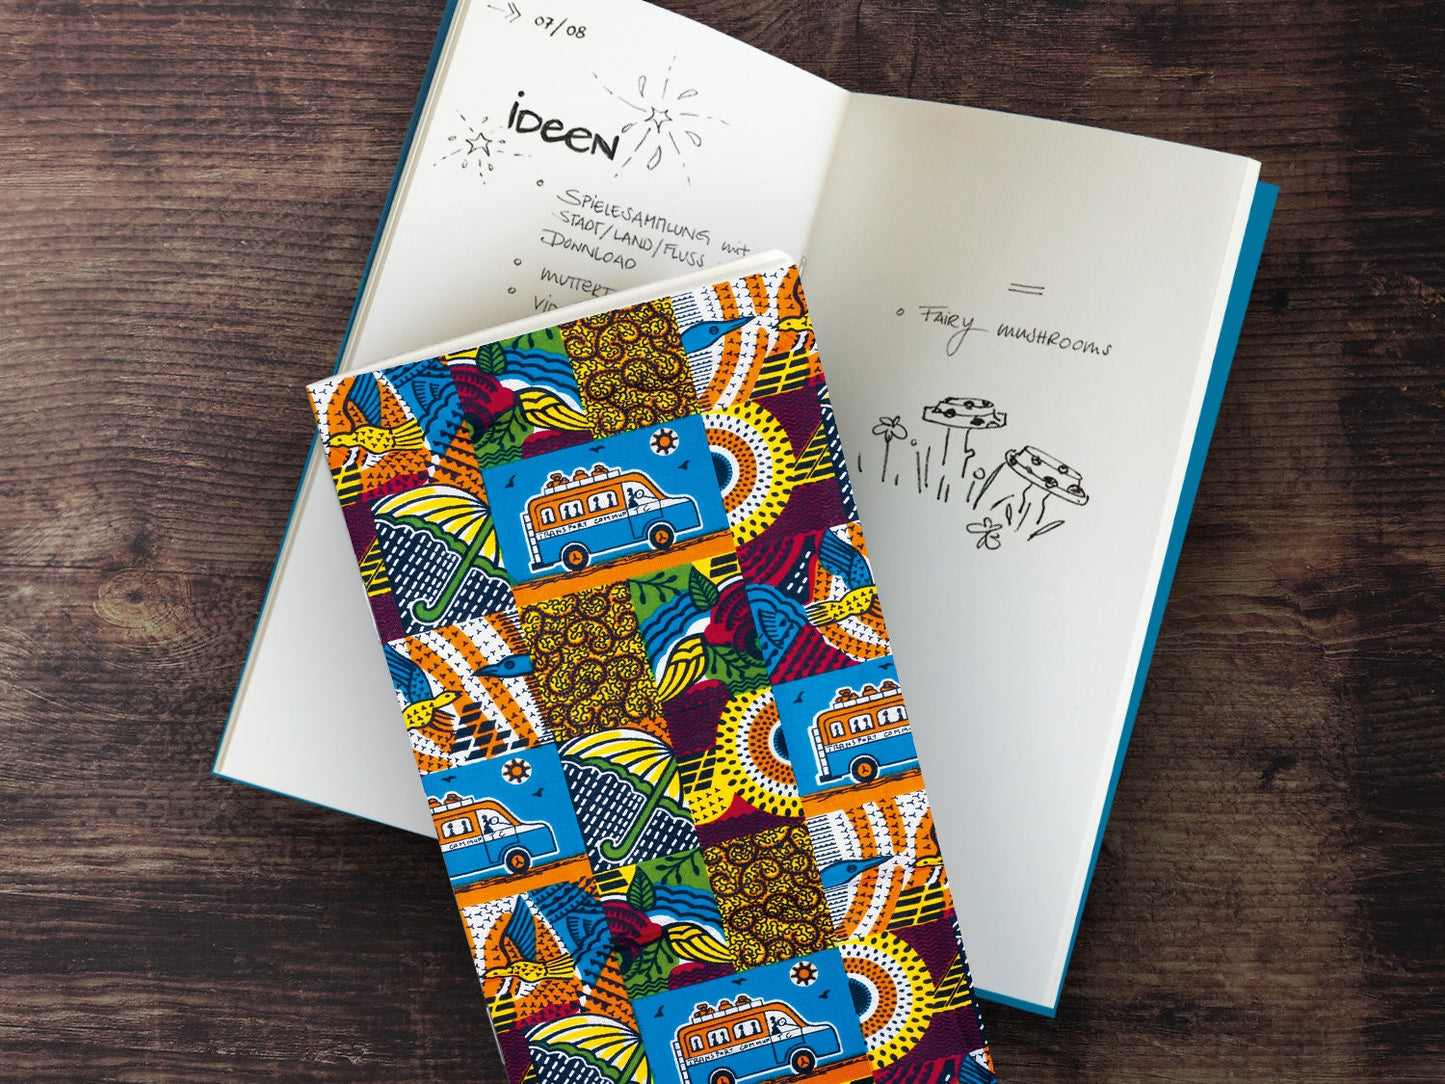 07/08
iDEEN
SPiELESAMMLUNG mit
STADT/LAND/FLUSS
DOWNLOAD
MUTTERT
Vi
FAiRY MUSHROOMS
TRANSPORT COMMUN T.C
TRANSPORT COMMU
COMMUN T.C
TRANSPORT COMMUN T.C